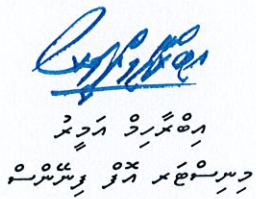 އިބްރާހިމް އަމީރު
މިނިސްޓަރ އޮފް ފިނޭންސް